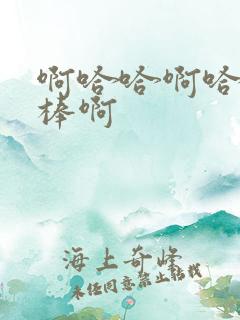 啊哈哈啊哈
棒啊
海上奇峰
未经同意禁止转载